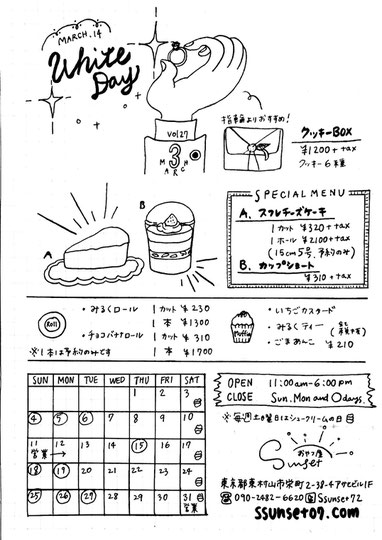 MARCH.14
White
Day
指輪よりおすすめ!
vol.27
3
MARCH
クッキーBOX
¥1200+tax
クッキー6種
SPECIAL MENU
A. スフレチーズケーキ
1カット ¥320+tax
1ホール ¥2100+tax
(15cm5号、予約のみ)
B. カップショート
¥310+tax
A
B
Roll
・みるくロール 1カット ¥230
1本 ¥1300
・チョコバナナロール 1カット ¥310
※1本は予約のみです 1本 ¥1700
Muffin
・いちごカスタード
・みるくティー
・ごまあんこ ¥210
SUN MON TUE WED THU FRI SAT
1 2 3
4 5 6 7 8 9 10
11 12 13 14 15 16 17
営業
18 19 20 21 22 23 24
25 26 27 28 29 30 31
営業
OPEN 11:00am-6:00pm
CLOSE Sun.Mon and O days.
※毎週土日曜日はシュークリームの日
おやつ屋
Sunset
東京都東村山市栄町2-38-4アサヒビル1F
090-2482-6620 Ssunset72
ssunset07.com